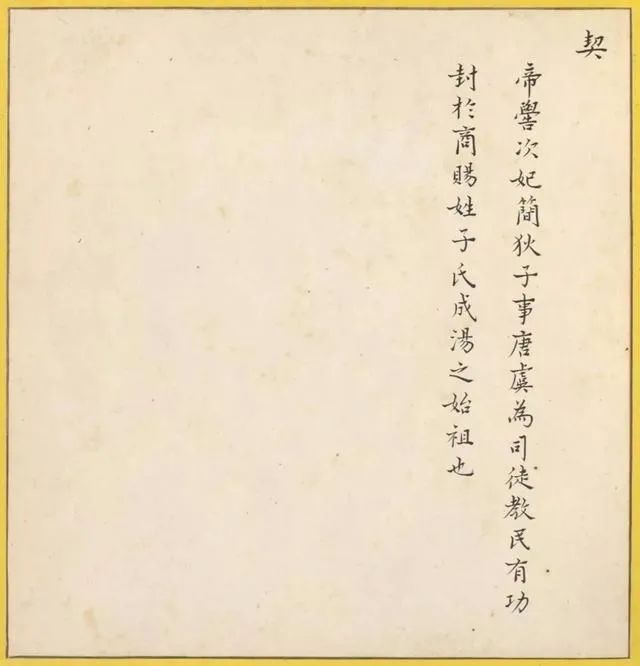 契
帝嚳次妃簡狄子事唐虞為司徒教民有功
封於商賜姓子氏成湯之始祖也